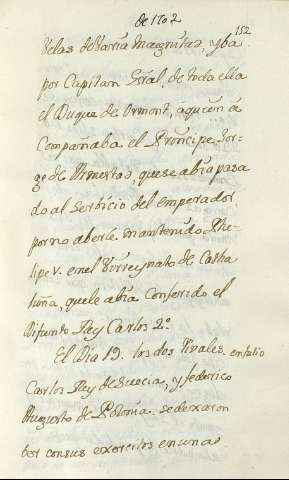 de 1702
152
Velas de Varia Magnitud, yba
por Capitan Gral, de toda ella
el Duque de Ormont, a quien a
Compañaba el Prinncipe Jor-
ge de Armestad, que se abia pasa
do al Serbicio del emperador
por no aberle mantenido Phe-
lipe V. en el Virreynato de Catha
luña, que le abia Conferido el
Difunto Rey Carlos 2º.
El Dia 19. los dos Rivales
Carlos Rey de Suecia, y federico
Augusto de Polonia se dexaron
ber con sus exercitos en unas